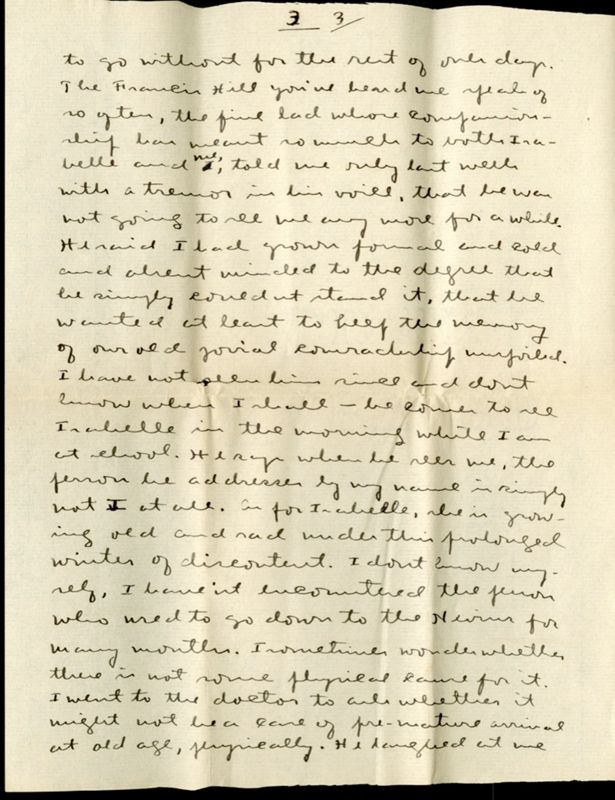 3 3/
to go without for the rest of our days.
The Francis Hill you've heard me speak of
so often, the fine lad whose companion-
ship has meant so much to both Isa-
belle and me, told me only last week
with a tremor in his voice, that he was
not going to see me any more for a while.
He said I had grown formal and cold
and absent minded to the degree that
he simply couldnt stand it, that he
wanted at least to keep the memory
of our old jovial comradeship unspoiled.
I have not seen him since and dont
know when I shall — he comes to see
Isabelle in the morning while I am
at school. He says when he sees me, the
person he addresses by my name is simply
not I at all. As for Isabelle, she is grow-
ing old and sad under this prolonged
winter of discontent. I dont know my-
self, I have'nt encountered the person
who used to go down to the Nevins for
many months. I sometimes wonder whether
there is not some physical cause for it.
I went to the doctor to ask whether it
might not be a case of pre-mature arrival
at old age, physically. He laughed at me